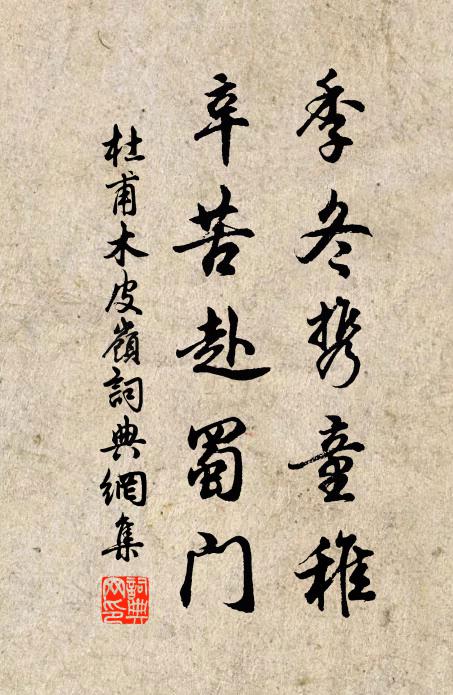 季冬携童稚
辛苦赴蜀門
杜甫木皮嶺詞典網集
詞典
网印